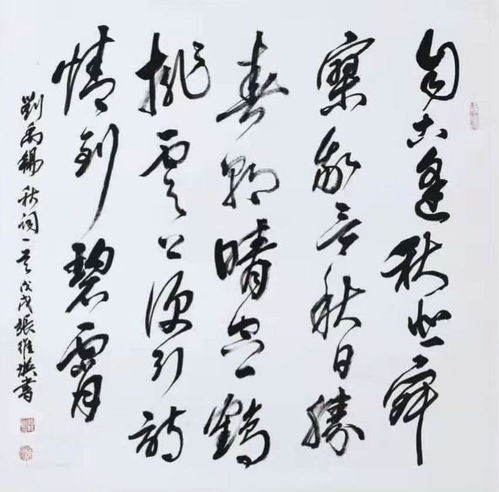 自古逢秋悲寂
寥我言秋日勝
春朝晴空一鶴
排雲上便引詩
情到碧霄
劉禹錫秋詞一首戊戌張維書